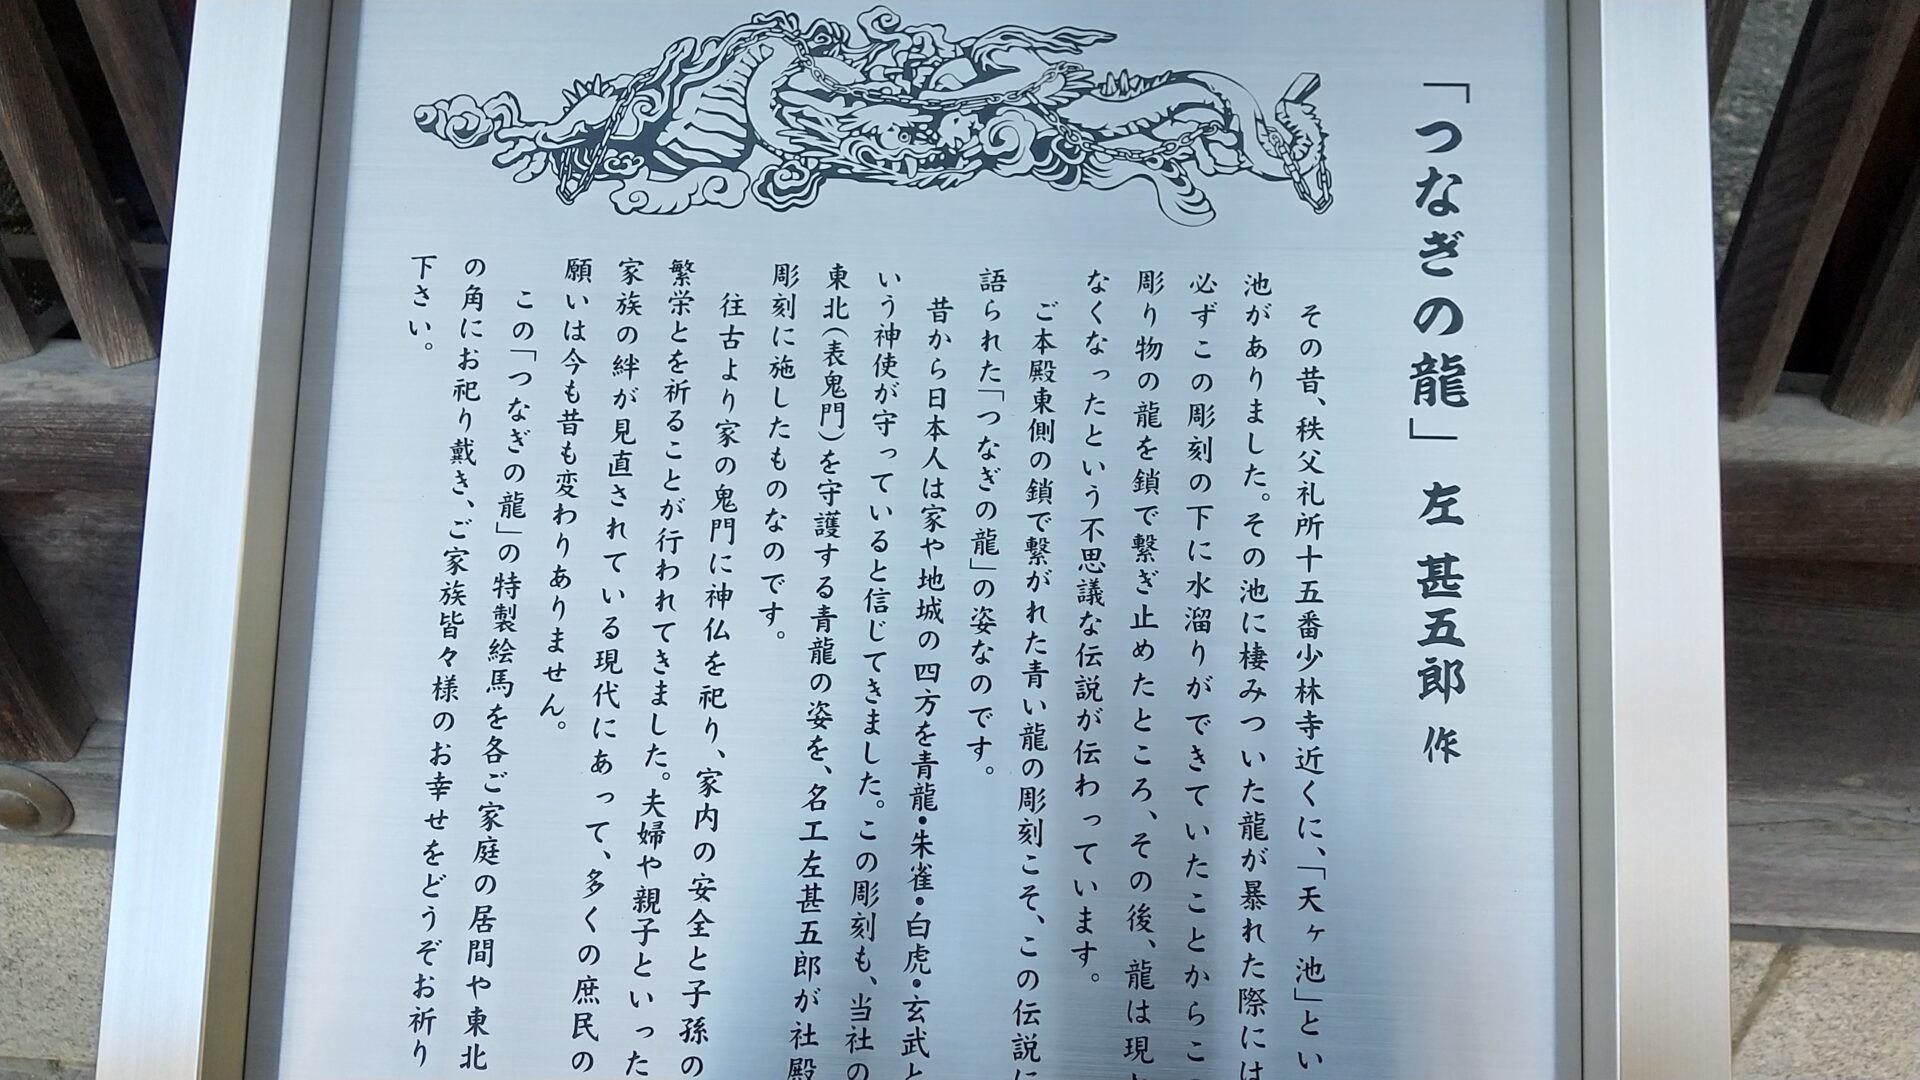 「つなぎの龍」 左 甚五郎 作
その昔、秩父礼所十五番少林寺近くに、「天ヶ池」とい
池がありました。その池に棲みついた龍が暴れた際には
必ずこの彫刻の下に水溜りができていたことからこ
彫り物の龍を鎖で繋ぎ止めたところ、その後、龍は現
なくなったという不思議な伝説が伝わっています。
ご本殿東側の鎖で繋がれた青い龍の彫刻こそ、この伝説に
語られた「つなぎの龍」の姿なのです。
昔から日本人は家や地城の四方を青龍・朱雀・白虎・玄武と
いう神使が守っていると信じてきました。この彫刻も、当社の
東北(表鬼門)を守護する青龍の姿を、名工左甚五郎が社殿
彫刻に施したものなのです。
往古より家の鬼門に神仏を祀り、家内の安全と子孫の
繁栄とを祈ることが行われてきました。夫婦や親子といった
家族の絆が見直されている現代にあって、多くの庶民の
願いは今も昔も変わりありません。
この「つなぎの龍」の特製絵馬を各ご家庭の居間や東北
の角にお祀り戴き、ご家族皆々様のお幸せをどうぞお祈り
下さい。